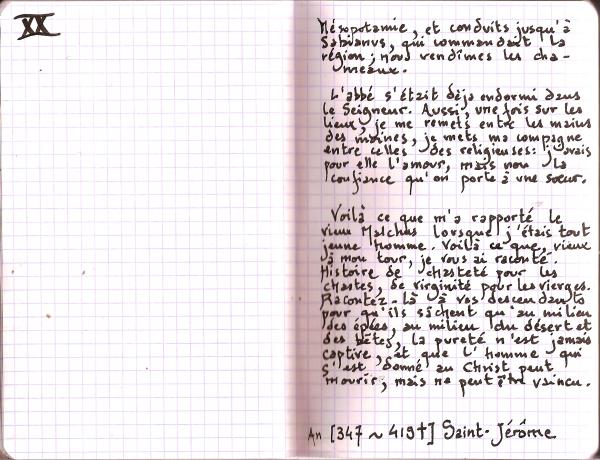 XX
Mésopotamie, et conduits jusqu'à
Sabianus, qui commandait la
région ; nous vendîmes les cha-
meaux.
L'abbé s'était déjà endormi dans
le Seigneur. Aussi, une fois sur les
lieux, je me remets entre les mains
des moines, je mets ma compagne
entre celles des religieuses: j'avais
pour elle l'amour, mais non la
confiance qu'on porte à une sœur.
Voilà ce que m'a rapporté le
vieux Malchus lorsque j'étais tout
jeune homme. Voilà ce que, vieux
à mon tour, je vous ai raconté.
Histoire de chasteté pour les
chastes, de virginité pour les vierges.
Racontez-là à vos descendants
pour qu'ils sachent qu'au milieu
des épées, au milieu du désert et
des bêtes, la pureté n'est jamais
captive, et que l'homme qui
s'est donné au Christ peut
mourir, mais ne peut être vaincu.
An [347 ~ 419†] Saint-Jérôme